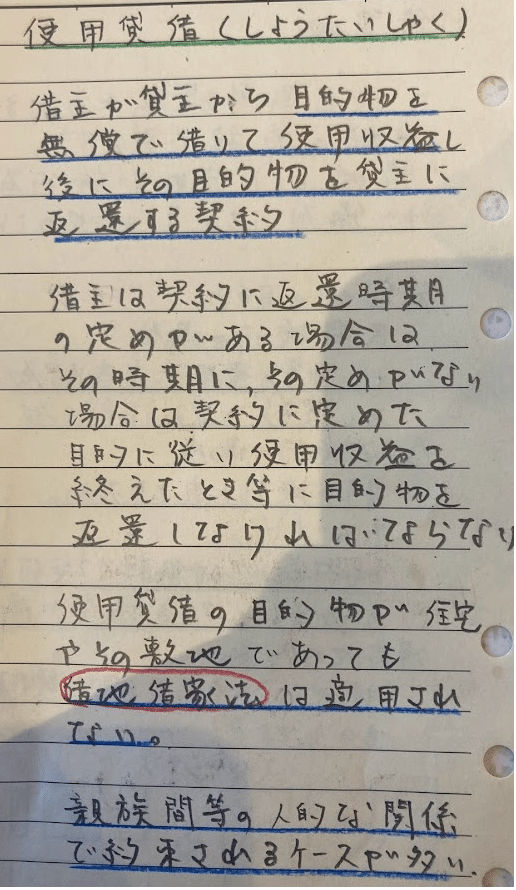 使用貸借(しようたいしゃく)
借主が貸主から目的物を
無償で借りて使用収益し
後にその目的物を貸主に
返還する契約
借主は契約に返還時期
の定めがある場合は
その時期に、その定めがない
場合は契約に定めた
目的に従い使用収益を
終えたとき等に目的物を
返還しなければならない
使用貸借の目的物が住宅
やその敷地であっても
借地借家法は適用され
ない。
親族間等の人的な関係
で約束されるケースが多い。